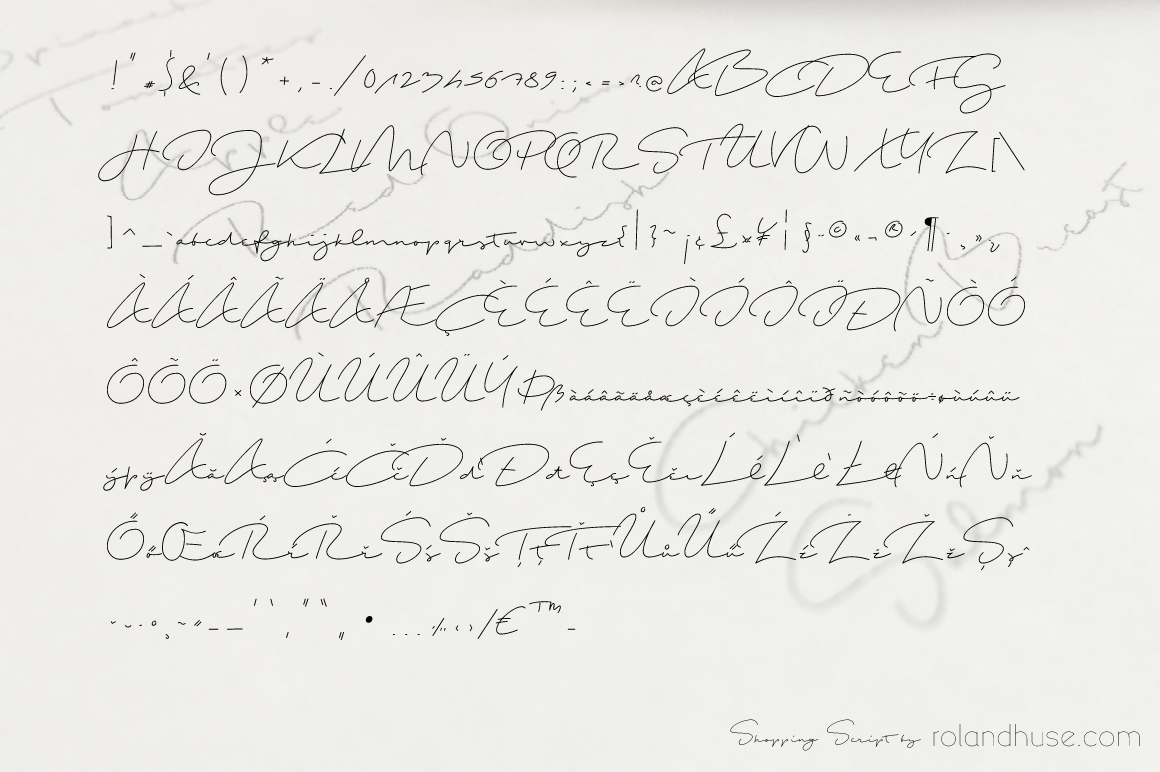 ! " # $ & ' ( ) * + , - . / 0 1 2 3 4 5 6 7 8 9 : ; < = > ? @ A B C D E F G
H I J K L M N O P Q R S T U V W X Y Z [ \
] ^ _ ` a b c d e f g h i j k l m n o p q r s t u v w x y z { | } ~ ¡ ¢ £ ¤ ¥ ¦ § ¨ © « ¬ ® ´ ¶ · ¸ »
À Á Â Ã Ä Å Æ Ç È É Ê Ë Ì Í Î Ï Ð Ñ Ò Ó
Ô Õ Ö × Ø Ù Ú Û Ü Ý Þ ß à á â ã ä å æ ç è é ê ë ì í î ï ð ñ ò ó ô õ ö ÷ ø ù ú û ü
ý þ ÿ Ă ă Ą ą Ć ć Č č Ď ď Đ đ Ę ę Ě ě Ĺ ĺ Ľ ľ Ł ł Ń ń Ň ň
Ő ő Œ œ Ŕ ŕ Ř ř Ś ś Š š Ţ ţ Ť ť Ů ů Ű ű Ź ź Ż ż Ž ž Ș ș ˆ
• … ‹ › ⁄ € ™
Shopping Script by rolandhuse.com
Chicken
Salmon